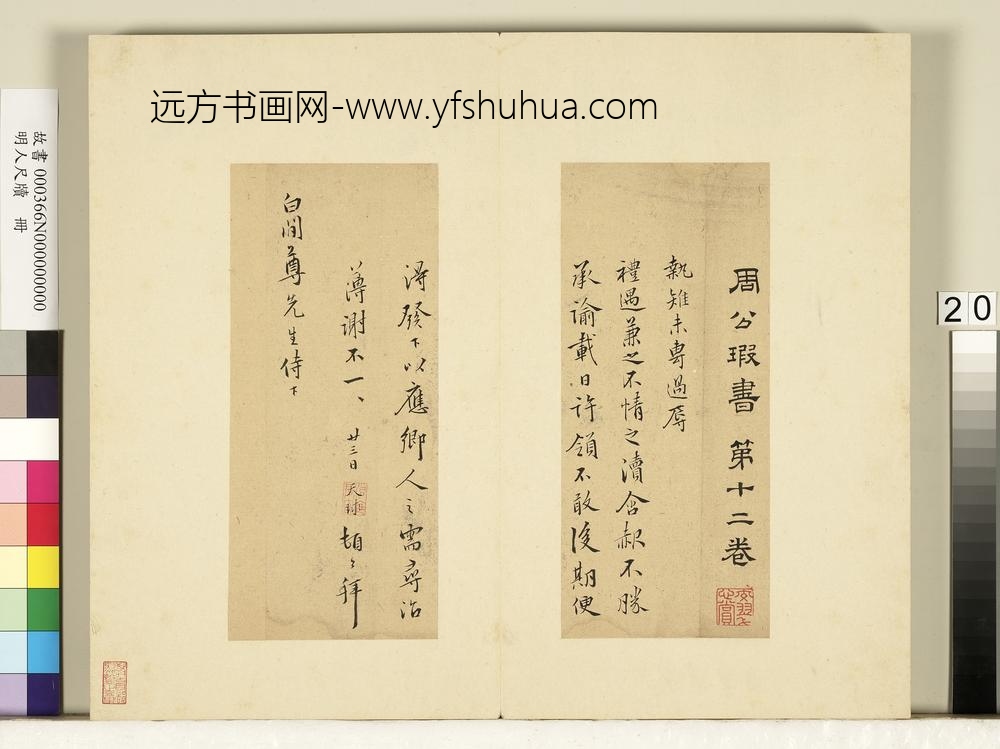 远方书画网-www.yfshuhua.com
故書 000366N000000000
明人尺牘 冊
20
周公瑕書 第十二卷
執雉未専過辱
禮遇兼之不情之瀆含赧不勝
承諭載日許領不敢後期便
得發下以應鄉人之需尋治
薄謝不一、 廿三日 天球 頓々拜
白閒尊先生侍下